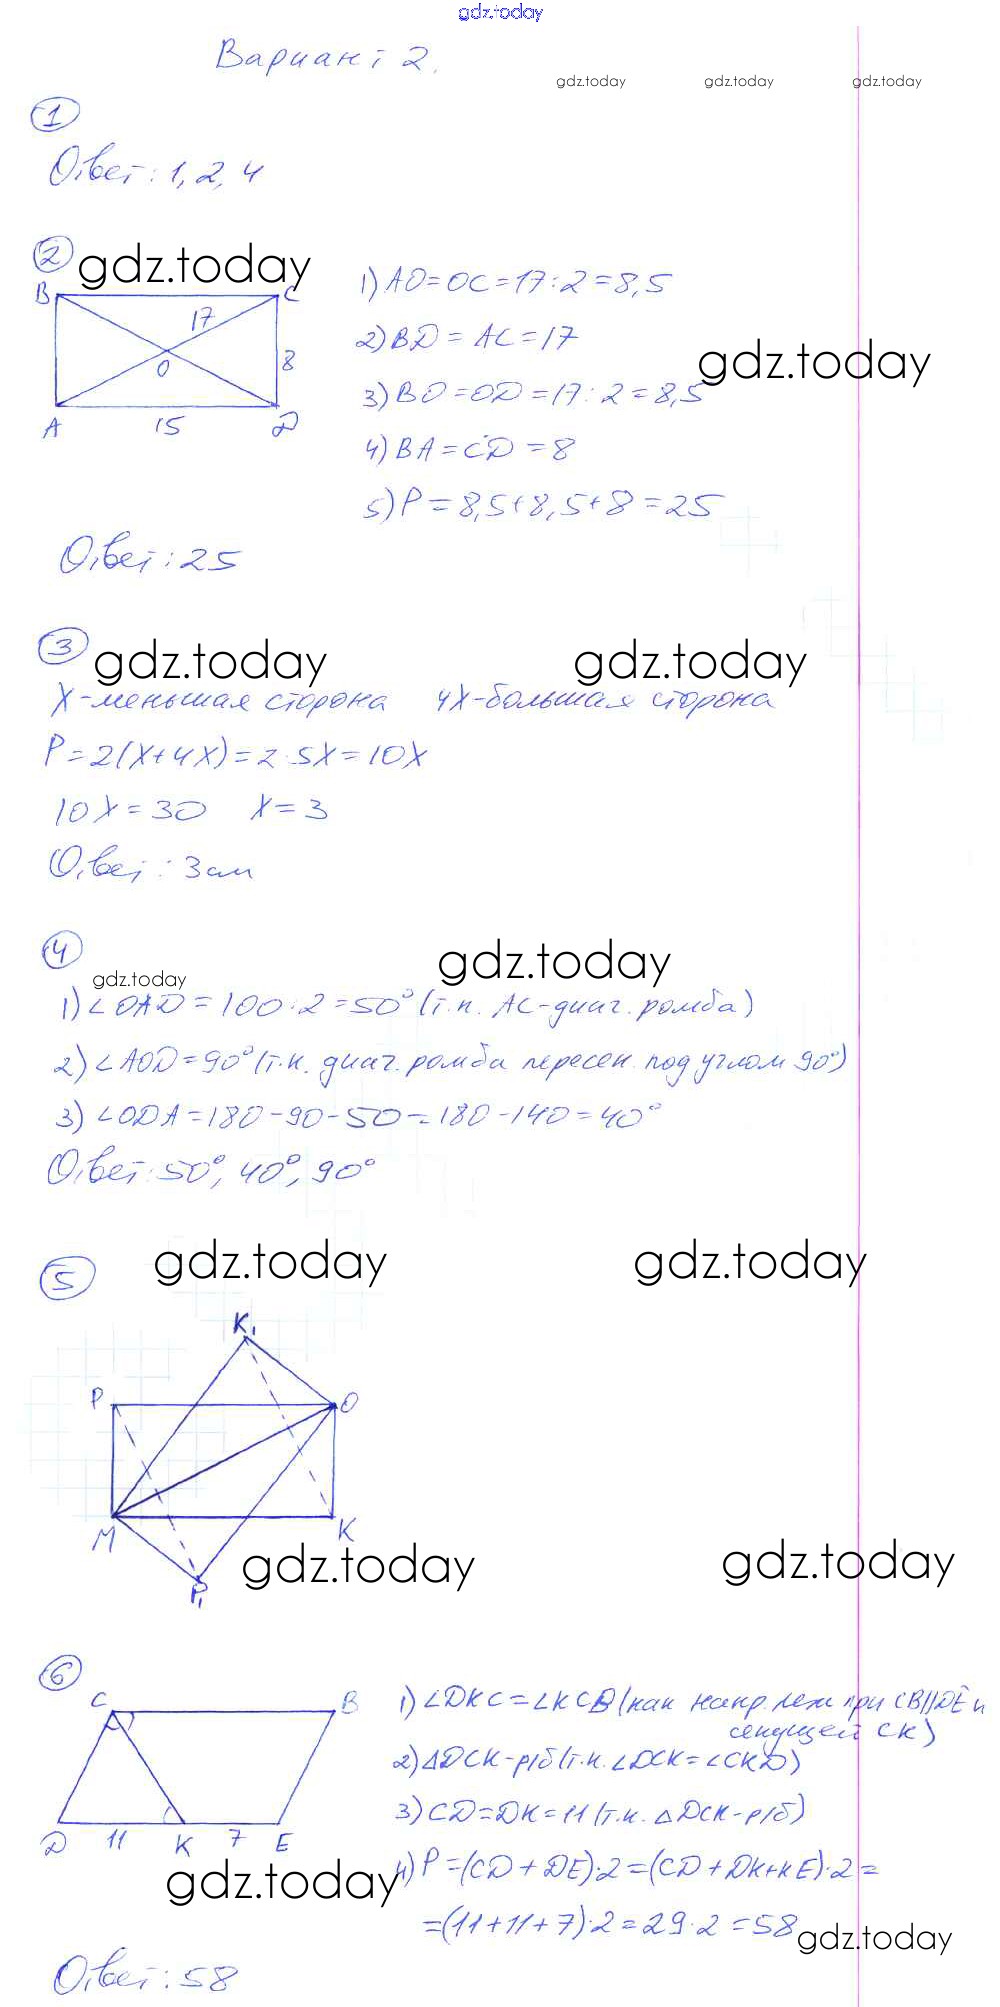 gdz.today
Вариант 2.
gdz.today gdz.today gdz.today
1
Ответ: 1, 2, 4
2
gdz.today
B C
17
O 8
A 15 D
1) AO = OC = 17 : 2 = 8,5
2) BD = AC = 17
gdz.today
3) BO = OD = 17 : 2 = 8,5
4) BA = CD = 8
5) P = 8,5 + 8,5 + 8 = 25
Ответ: 25
3
gdz.today gdz.today
X - меньшая сторона 4X - большая сторона
P = 2(X + 4X) = 2 · 5X = 10X
10X = 30 X = 3
Ответ: 3 см
4
gdz.today
gdz.today
1) ∠OAD = 100 : 2 = 50° (т.к. AC - диаг. ромба)
2) ∠AOD = 90° (т.к. диаг. ромба пересек. под углом 90°)
3) ∠ODA = 180 - 90 - 50 = 180 - 140 = 40°
Ответ: 50°, 40°, 90°
gdz.today gdz.today
5
K₁
P O
M K
gdz.today gdz.today
P₁
6
C B
D 11 K 7 E
1) ∠DKC = ∠KCB (как накр. леж при CB||DE и
секущей CK)
2) △DCK - р/б (т.к. ∠DCK = ∠CKD)
3) CD = DK = 11 (т.к. △DCK - р/б)
gdz.today
4) P = (CD + DE) · 2 = (CD + DK + KE) · 2 =
= (11 + 11 + 7) · 2 = 29 · 2 = 58
gdz.today
Ответ: 58